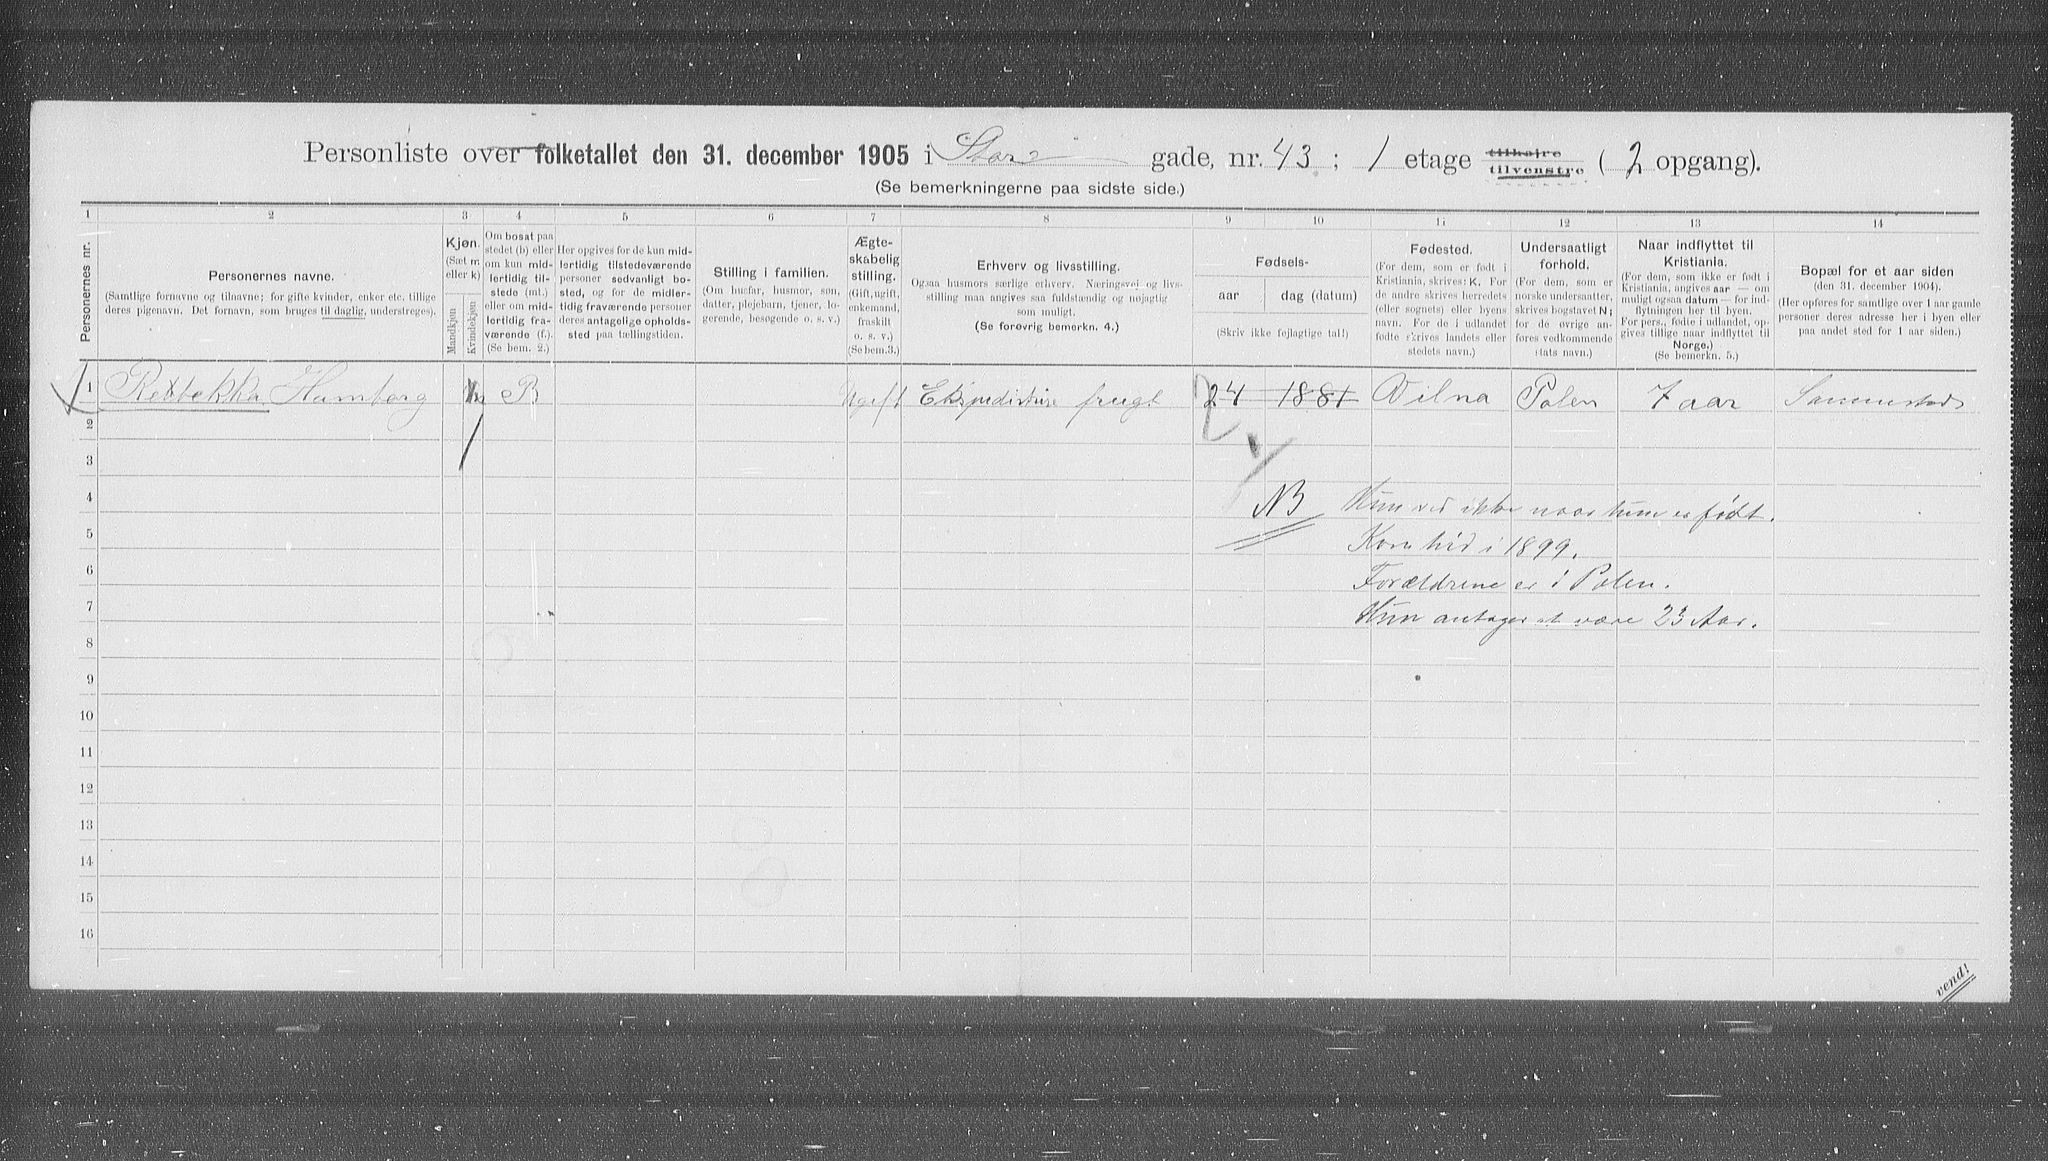 Personliste over folketallet den 31. december 1905 i Stor gade, nr. 43 ; 1 etage tilhøjre tilvenstre ( 2 opgang).
(Se bemerkningerne paa sidste side.)
1 2 3 4 5 6 7 8 9 10 11 12 13 14
Personernes nr.
Personernes navne.
(Samtlige fornavne og tilnavne; for gifte kvinder, enker etc. tillige
deres pigenavn. Det fornavn, som bruges til daglig, understreges).
Kjøn.
(Sæt m
eller k)
Mandkjøn
Kvindekjøn
Om bosat paa
stedet (b) eller
om kun mid-
lertidig til-
stede (mt.)
eller om mid-
lertidig fra-
værende (f.).
(Se bem. 2.)
Her opgives for de kun mid-
lertidig tilstedeværende
personer sedvanligt bo-
sted, og for de midler-
tidig fraværende personer
deres antagelige opholds-
sted paa tællingstiden.
Stilling i familien.
(Om husfar, husmor, søn,
datter, plejebarn, tjener, lo-
gerende, besøgende o. s. v.)
Ægte-
skabelig
stilling.
(Gift, ugift,
enkemand,
fraskilt
o. s. v.)
(Se bem.3.)
Erhverv og livsstilling.
Ogsaa husmors særlige erhverv. Næringsvej og livs-
stilling maa angives saa fuldstændig og nøjagtig
som muligt.
(Se forøvrig bemerkn. 4.)
Fødsels-
aar
dag (datum)
(Skriv ikke fejlagtige tal!)
Fødested.
(For dem, som er født i
Kristiania, skrives: K. For
de andre skrives herredets
(eller sognets) eller byens
navn. For de i udlandet
fødte skrives landets eller
stedets navn.)
Undersaatligt
forhold.
(For dem, som er
norske undersaatter,
skrives bogstavet N;
for de øvrige an-
føres vedkommende
stats navn.)
Naar indflyttet til
Kristiania.
(For dem, som ikke er født i
Kristiania, angives aar — om
muligt ogsaa datum — for ind-
flytningen her til byen.
For pers., fødte i udlandet, op-
gives tillige naar indflyttet til
Norge.)
(Se bemerkn. 5.)
Bopæl for et aar siden
(den 31. december 1904).
(Her opføres for samtlige over 1 aar gamle
personer deres adresse her i byen eller
paa andet sted for 1 aar siden.)
1 Rebbekka Hamborg B Ugift Ekspeditrise frugt 24 1881 Vilna Polen 7 aar Sammesteds
2
3
4 NB Hun ved ikke naar hun er født.
5 Kom hid i 1899.
6 Forældrene er i Polen.
7 Hun antager at være 23 Aar.
8
9
10
11
12
13
14
15
16
vend!